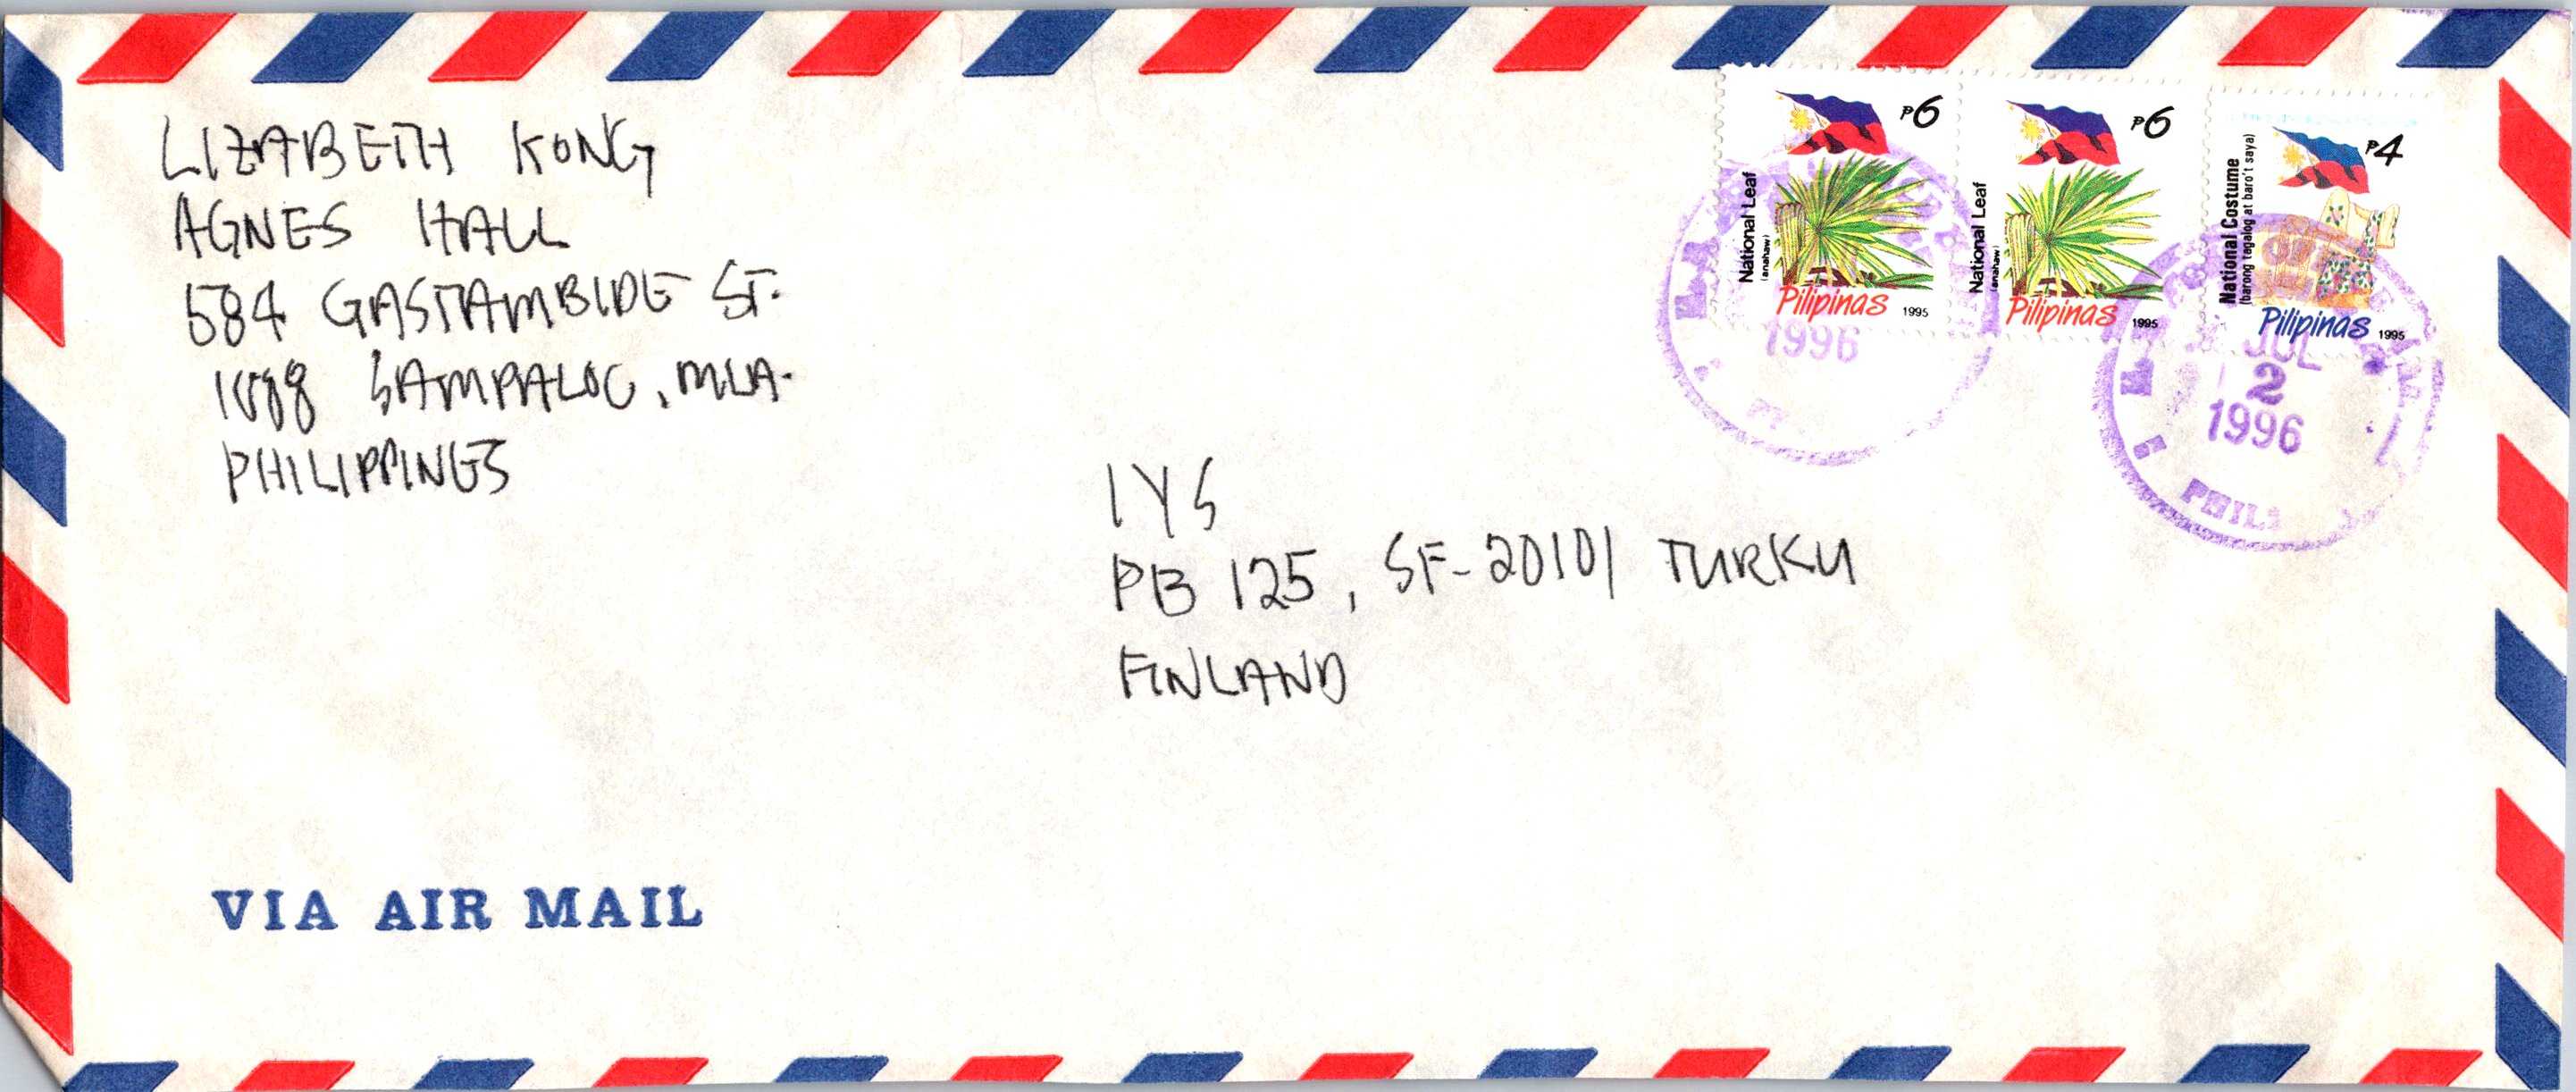 LIZABETH KONG
AGNES HALL
584 GASTAMBIDE ST.
1008 SAMPALOC, MLA.
PHILIPPINES
₱6
National Leaf
(anahaw)
Pilipinas
1995
₱6
National Leaf
(anahaw)
Pilipinas
1995
₱4
National Costume
(barong tagalog at baro't saya)
Pilipinas
1995
1996
JUL
2
1996
IYS
PB 125, SF-20101 TURKU
FINLAND
VIA AIR MAIL